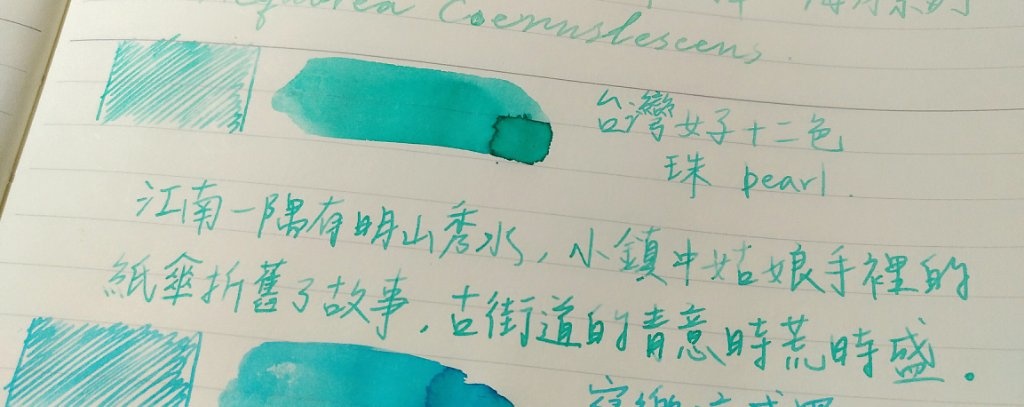 Coerulescens
台灣女子十二色
珠 pearl
江南一隅有明山秀水，小鎮中姑娘手裡的
紙傘折舊了故事，古街道的青意時荒時盛。